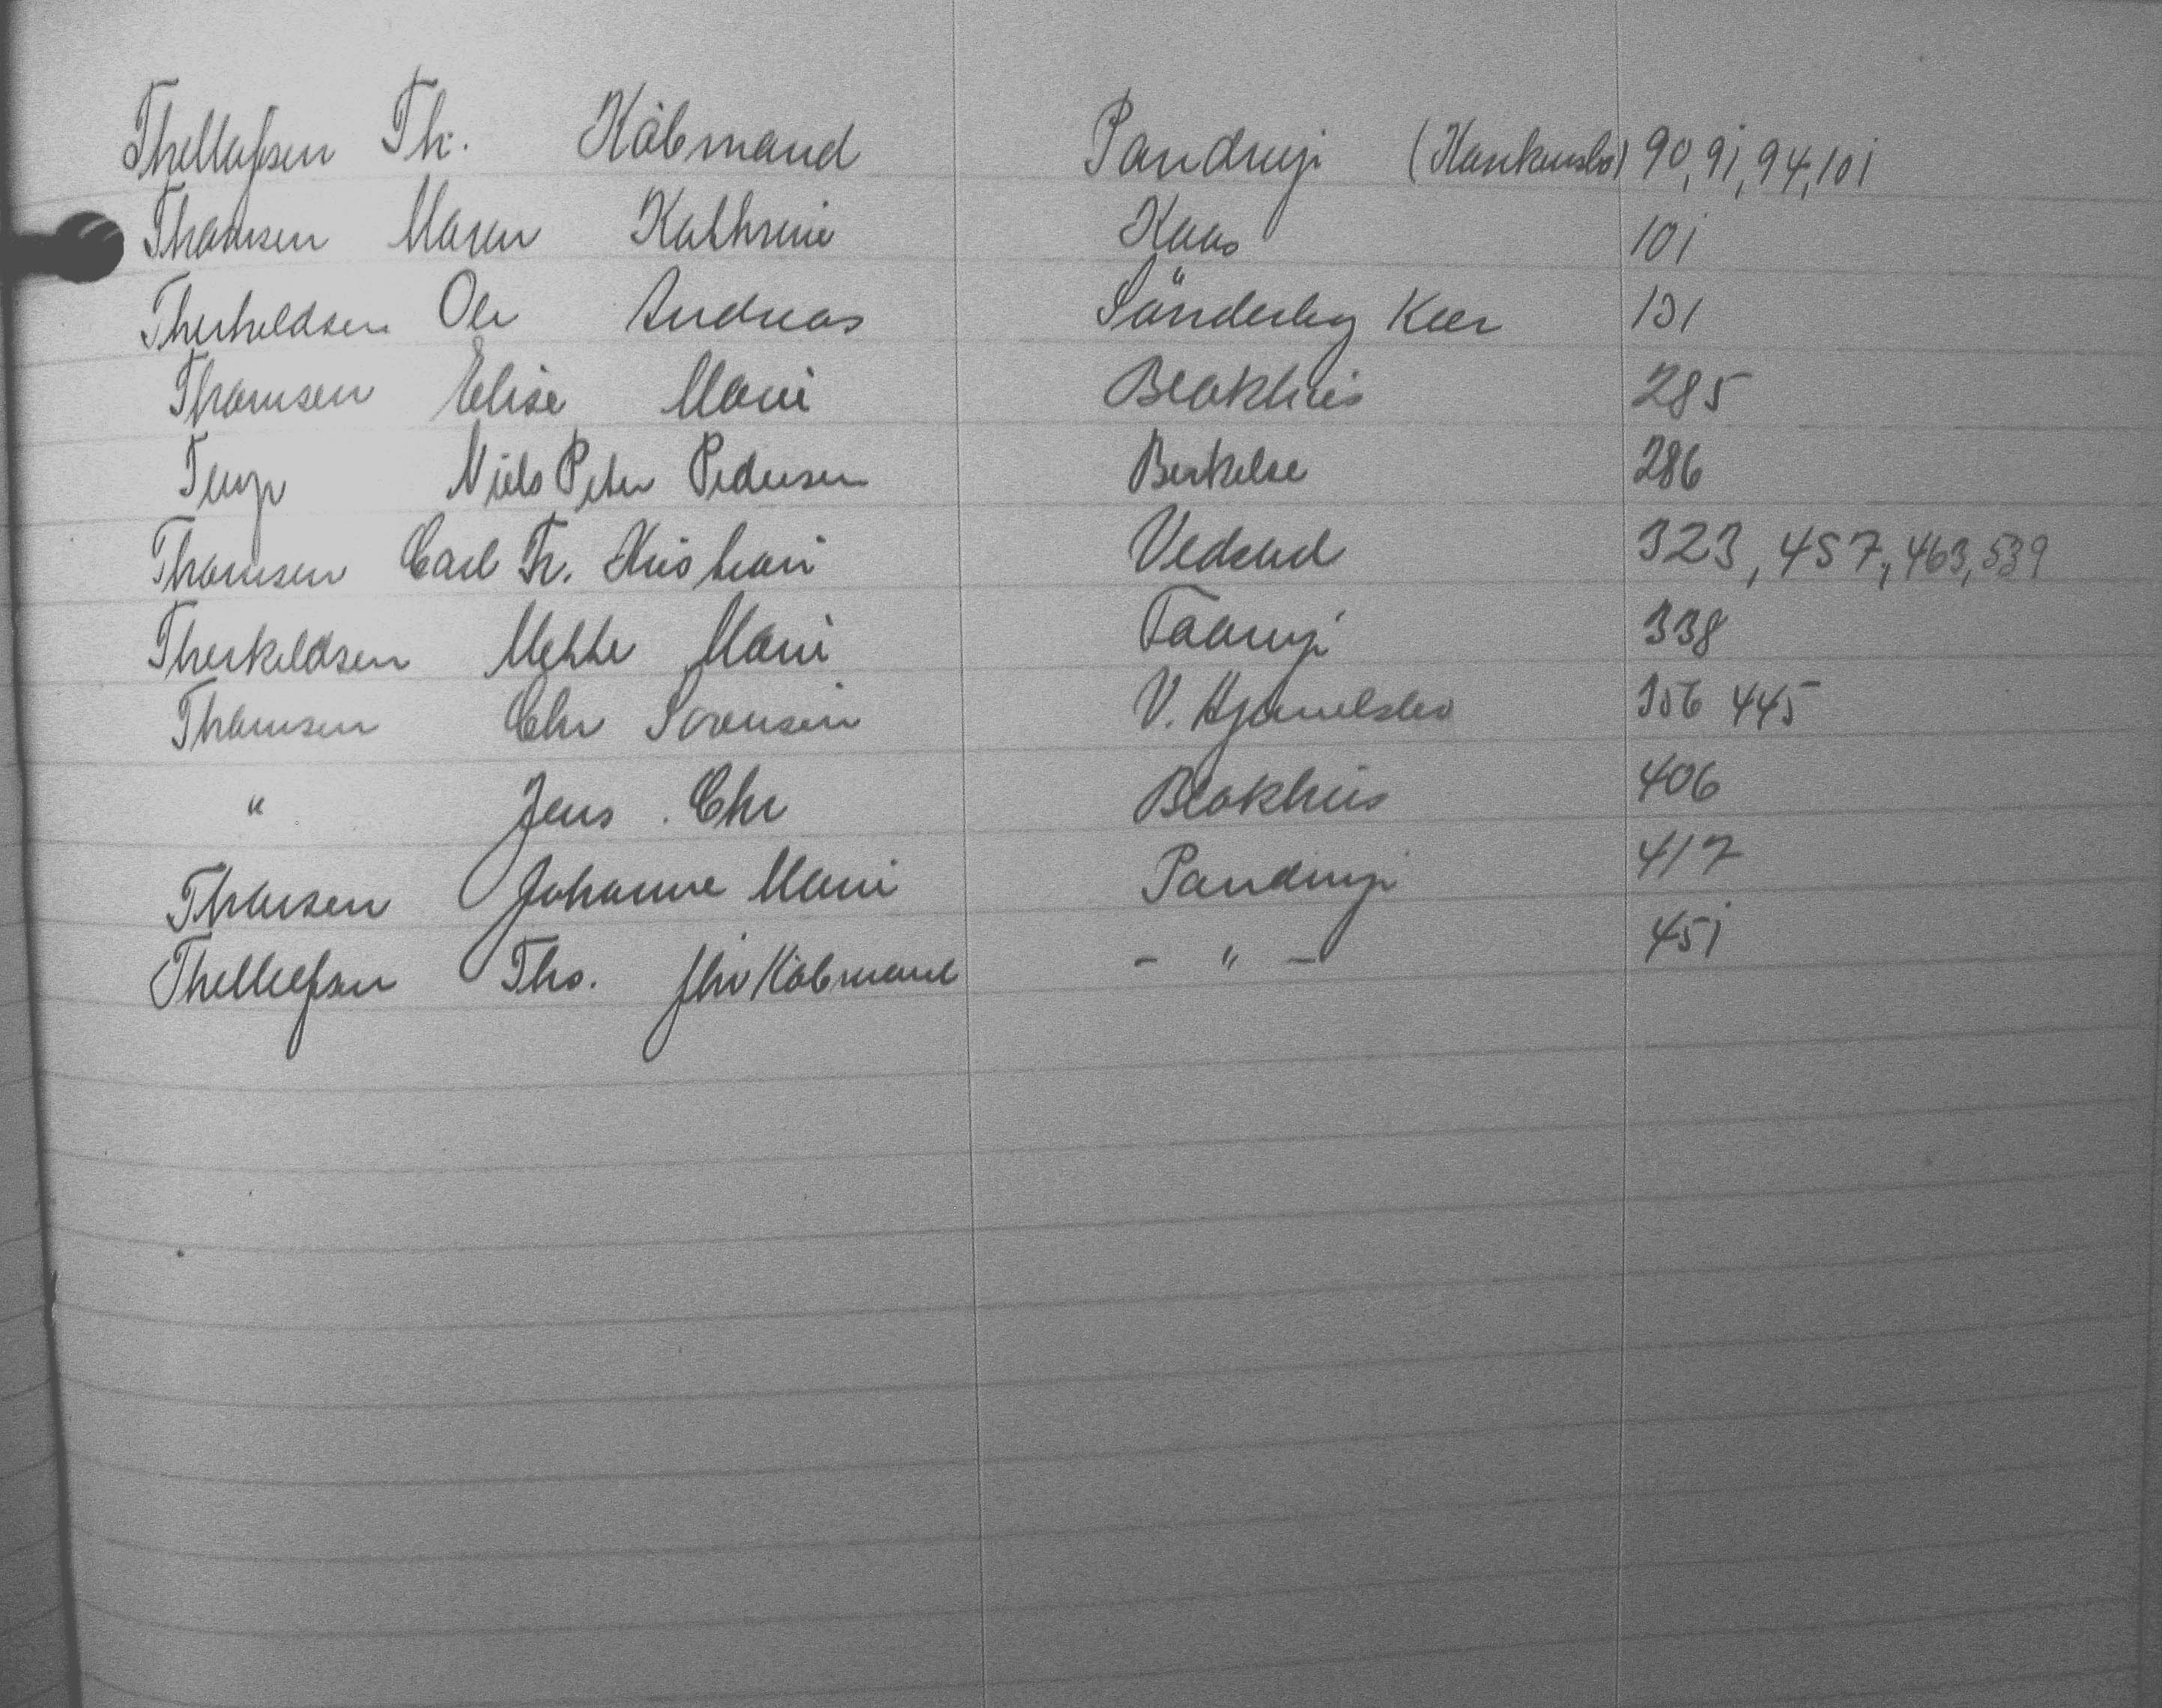 Thellefsen Th. Købmand Pandrup 90, 91, 94, 101
Thomsen Maren Kathrine Kaas 101
Therkeldsen Ole Andreas Sønderby Kær 131
Thomsen Elise Marie Blokhus 285
Terp Niels Peter Pedersen Birkelse 286
Thomsen Carl Fr. Kristian Vedsted 323, 457, 463, 539
Therkeldsen Mette Marie Faarup 338
Thomsen Chr Sørensen V. Hjermeslev 356 445
" Jens Chr Blokhus 406
Thomsen Johanne Marie Pandrup 417
Thellefsen Ths. Købmand - " - 451